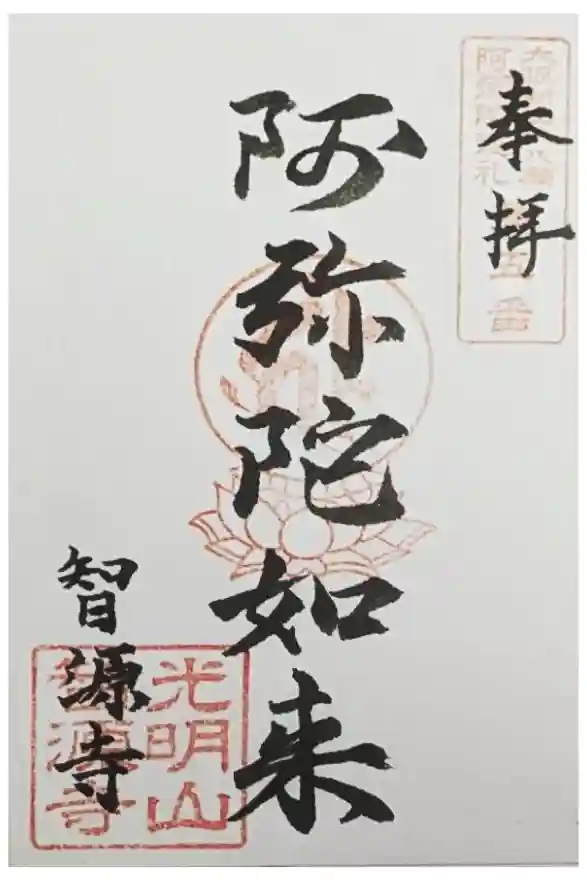 奉拝
阿弥陀如来
智源寺
光明山
智源寺